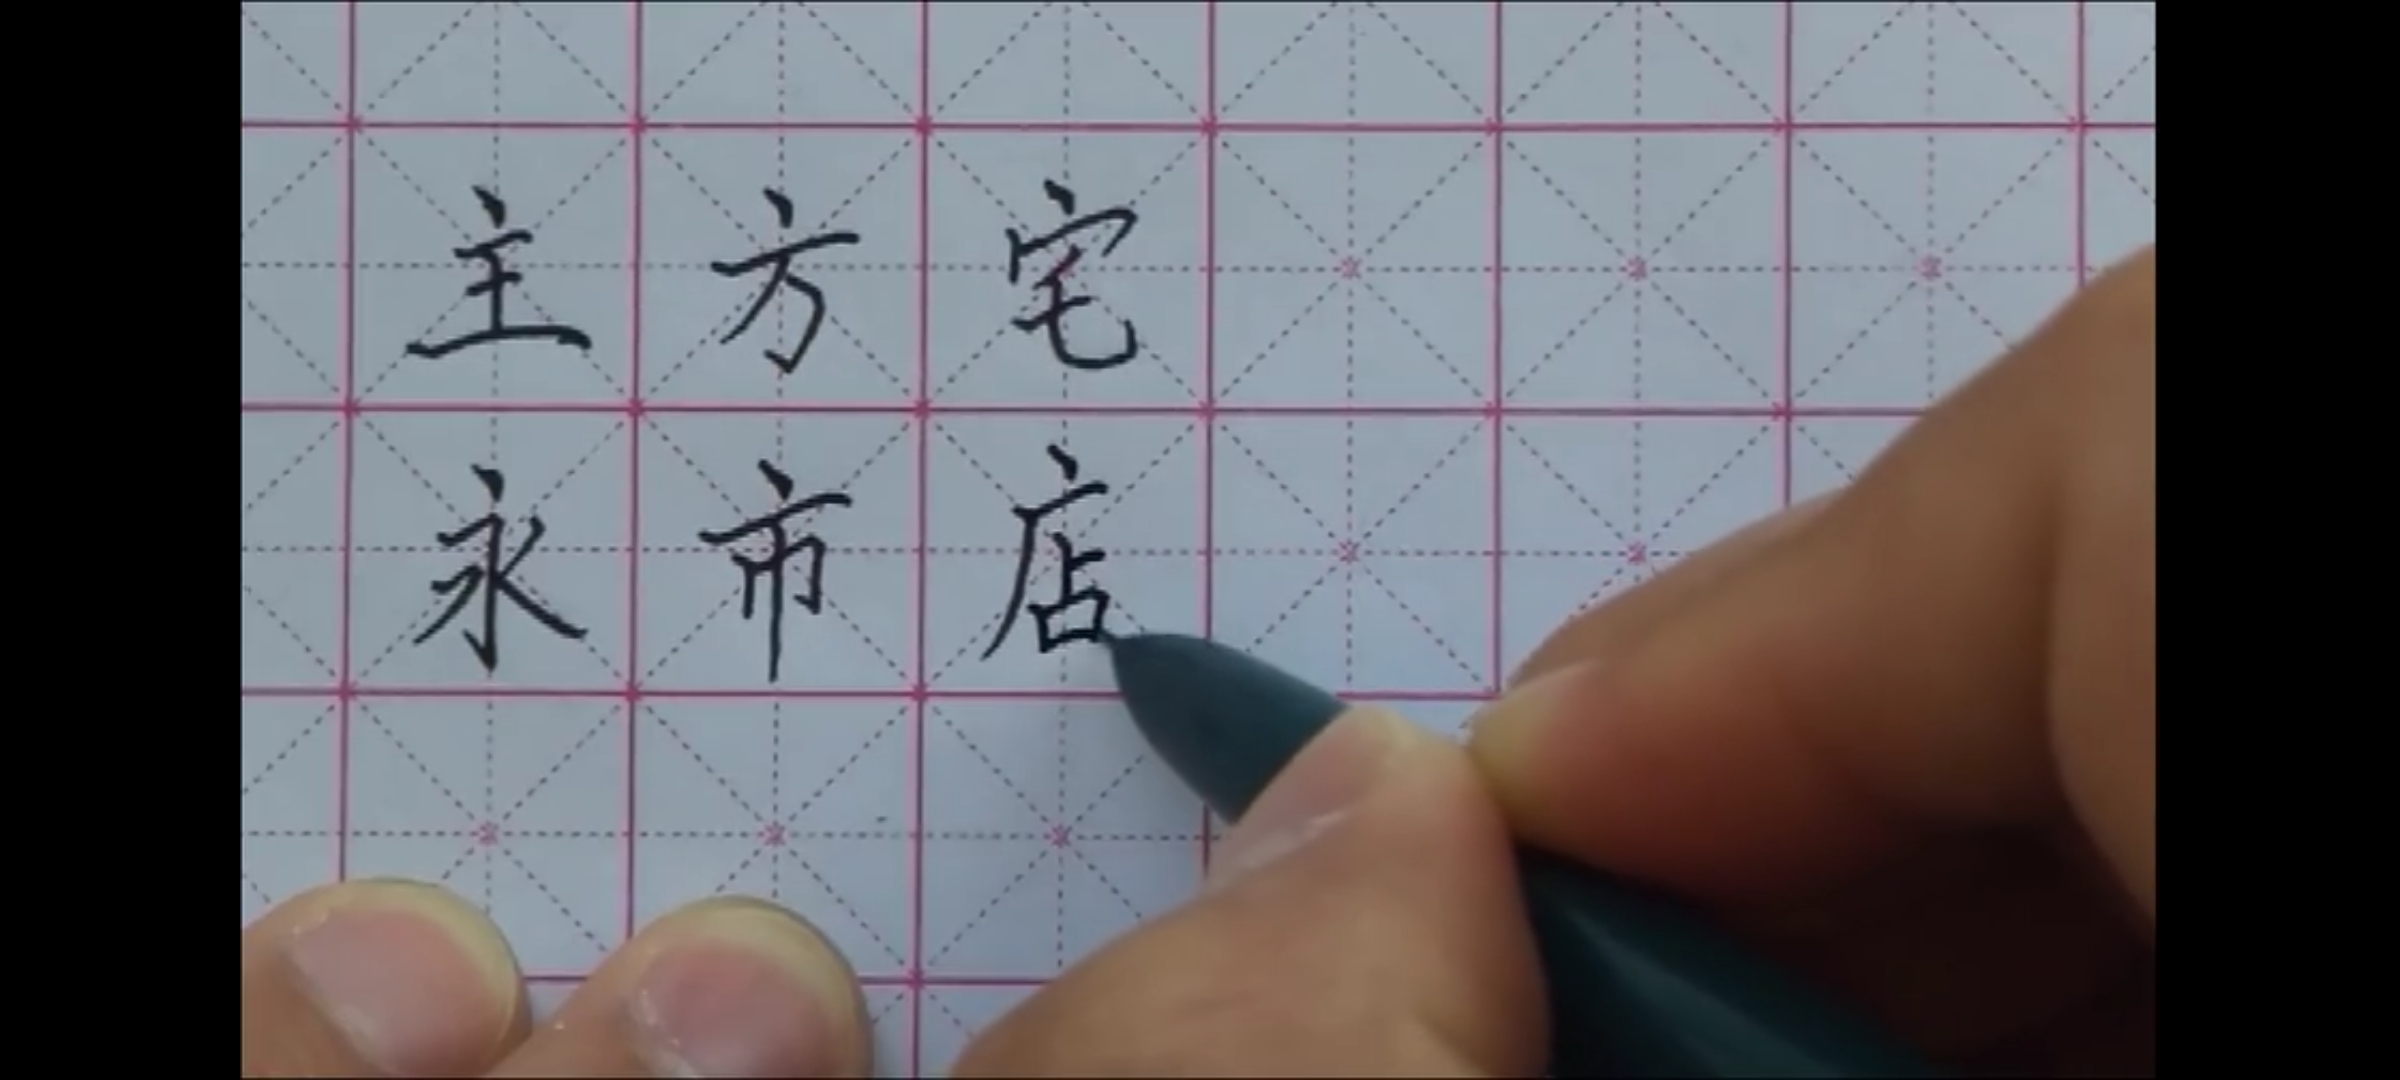 主方宅
永市店